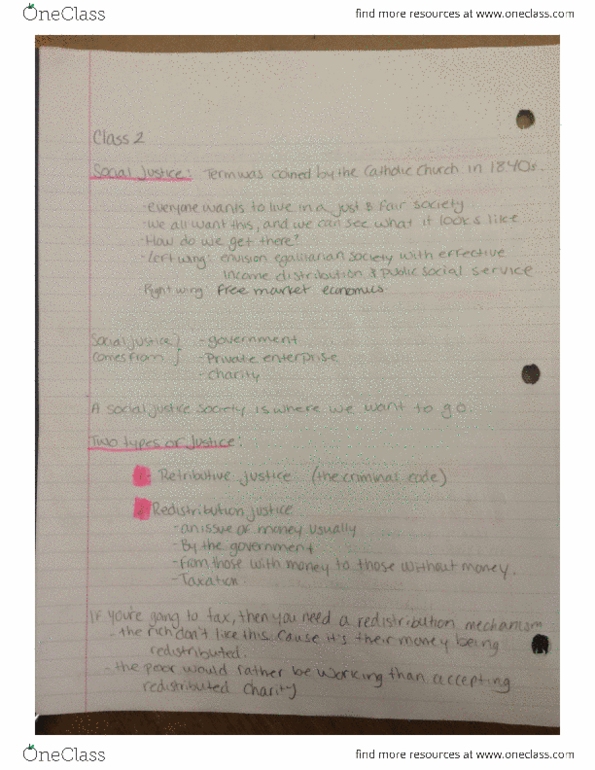 OneClass
find more resources at www.oneclass.com
Class 2
Social Justice: Term was coined by the Catholic Church in 1840s.
-everyone wants to live in a just & fair society
-we all want this, and we can see what it looks like
-How do we get there?
-Left wing: envision egalitarian society with effective
income distribution & public social service
-Right wing: free market economics.
Social justice } -government
comes from -Private enterprise
-charity
A social justice society is where we want to go.
Two types of Justice:
1- Retributive justice (the criminal code)
2 Redistribution justice
-an issue of money usually
-By the government
-from those with money to those without money.
-Taxation
If you're going to tax, then you need a redistribution mechanism
-the rich don't like this cause it's their money being
redistributed.
-the poor would rather be working than accepting
redistributed charity
OneClass
find more resources at www.oneclass.com